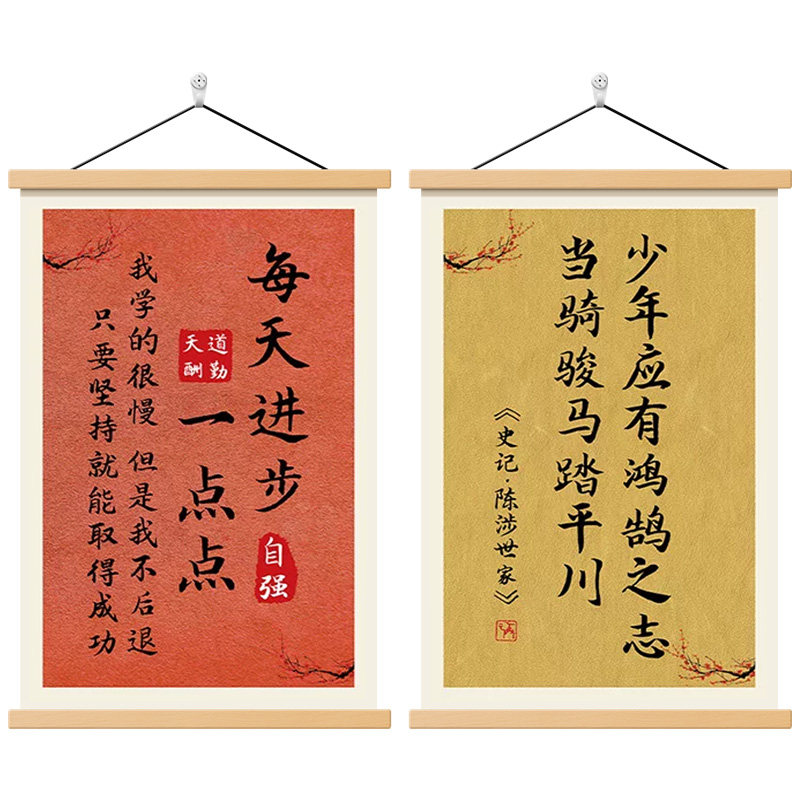 每天进步
自强
一点点
天道酬勤
我学的很慢 但是我不后退
只要坚持就能取得成功
少年应有鸿鹄之志
当骑骏马踏平川
《史记·陈涉世家》